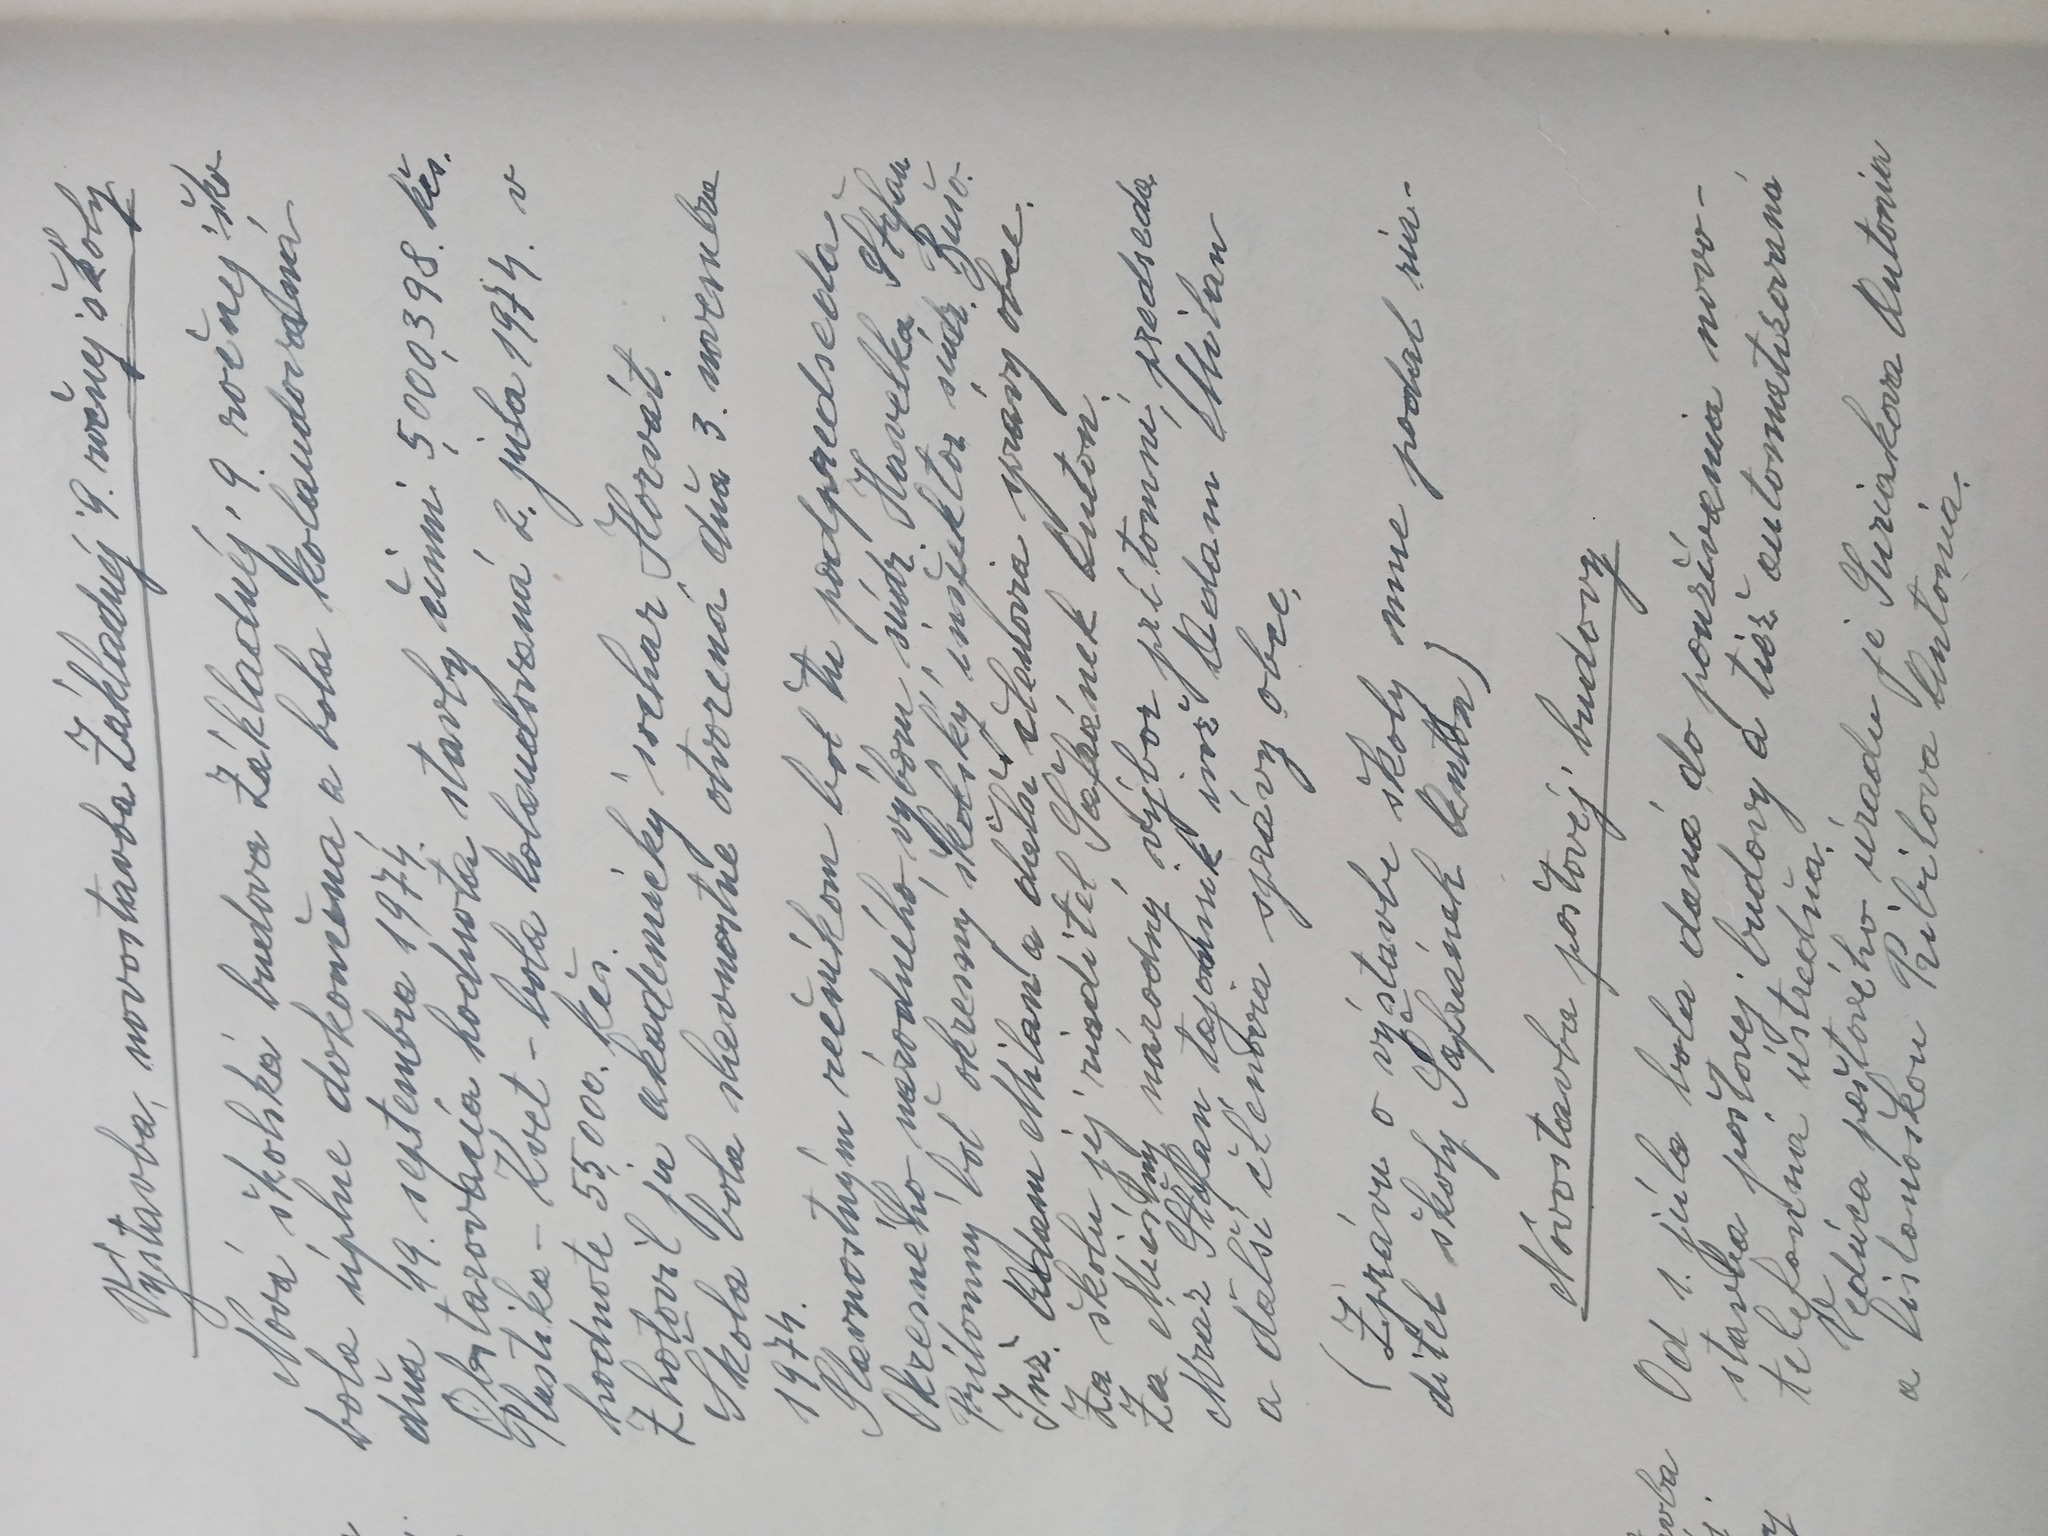 Výstavba, novostavba Základnej 9. ročnej školy
Nová školská budova Základnej 9. ročnej ško
bola úplne dokončená a bola kolaudovaná
dňa 19. septembra 1974.
Obstarovacia hodnota stavby činní 5,000,398. kčs.
Plastika - Kvet - bola kolaudovaná 2. júla 1974. v
hodnote 55,000. Kčs.
Zhotovil ju akademický sochar Horvát.
Škola bola slavnostne otvorená dňa 3. novembra
1974.
Slavnostným rečníkom bol tu podpredseda
Okresného národného výboru súdr. Havelka Štefan
Prítomný bol okresný školský inšpektor súdr. Bušo.
Inž. Adam Milan a dalšé členovia správy obce.
Za školu jej riaditel Safránek Anton.
Za Miestny národný výbor prítomní, predseda
Mraz Štefan tajomník inž Adam Milan
a dalšé členovia správy obce,
(Zprávu o výstavbe školy mne podal ria-
ditel školy Safránek Anton)
Novostavba poštovej budovy
Od 1. júla bola daná do používania novo-
stavba poštovej budovy a tiež automatizovaná
telefonná ústredňa.
Vedúca poštového úradu je Suriaková Antonia
a listonoškou Ribilova Antonia.